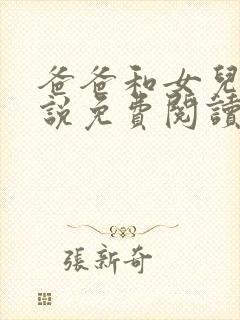 爸爸和女兒
說免費閱讀
張新奇